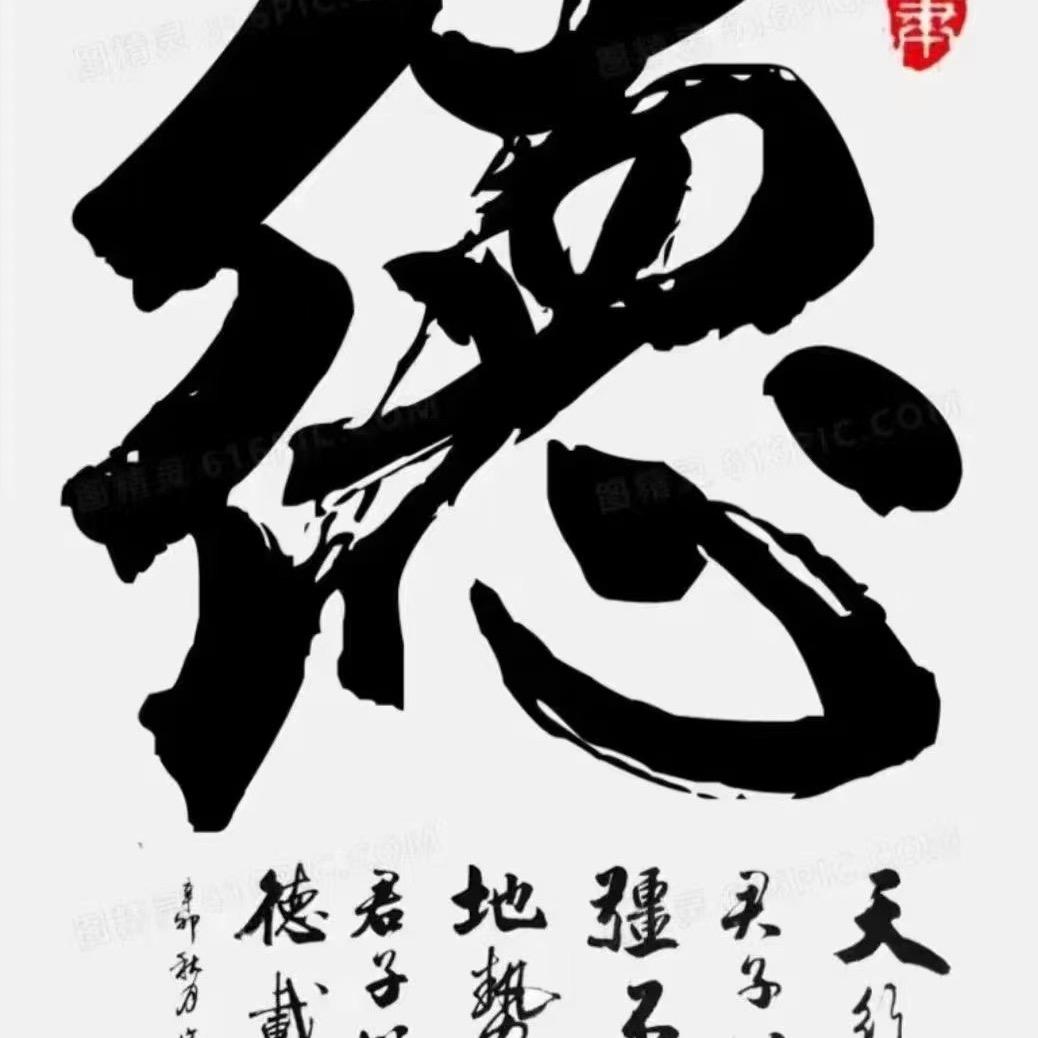 德
天行
君子
疆不
地勢
君子
德載
辛卯秋月
图精灵 616PIC.COM